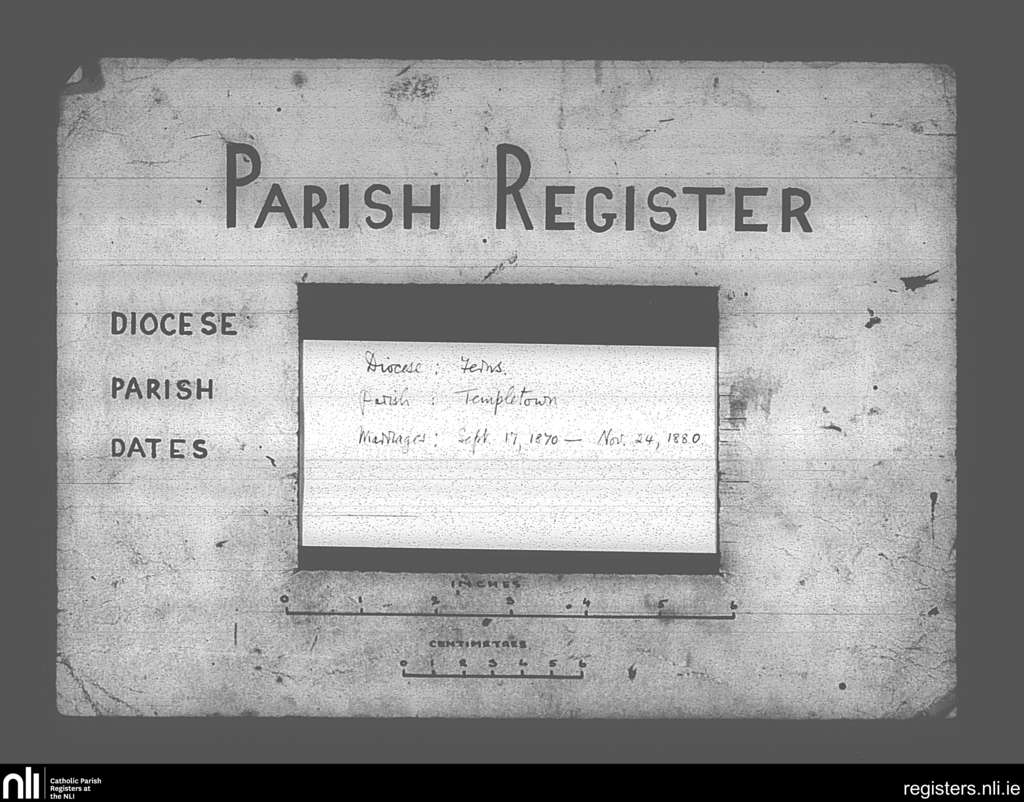 PARISH REGISTER
DIOCESE
PARISH
DATES
Diocese : Ferns.
Parish : Templetown
Marriages : Sept. 17, 1870 — Nov. 24, 1880.
INCHES
0 1 2 3 4 5 6
CENTIMETRES
0 1 2 3 4 5 6
nli
Catholic Parish
Registers at
the NLI
registers.nli.ie